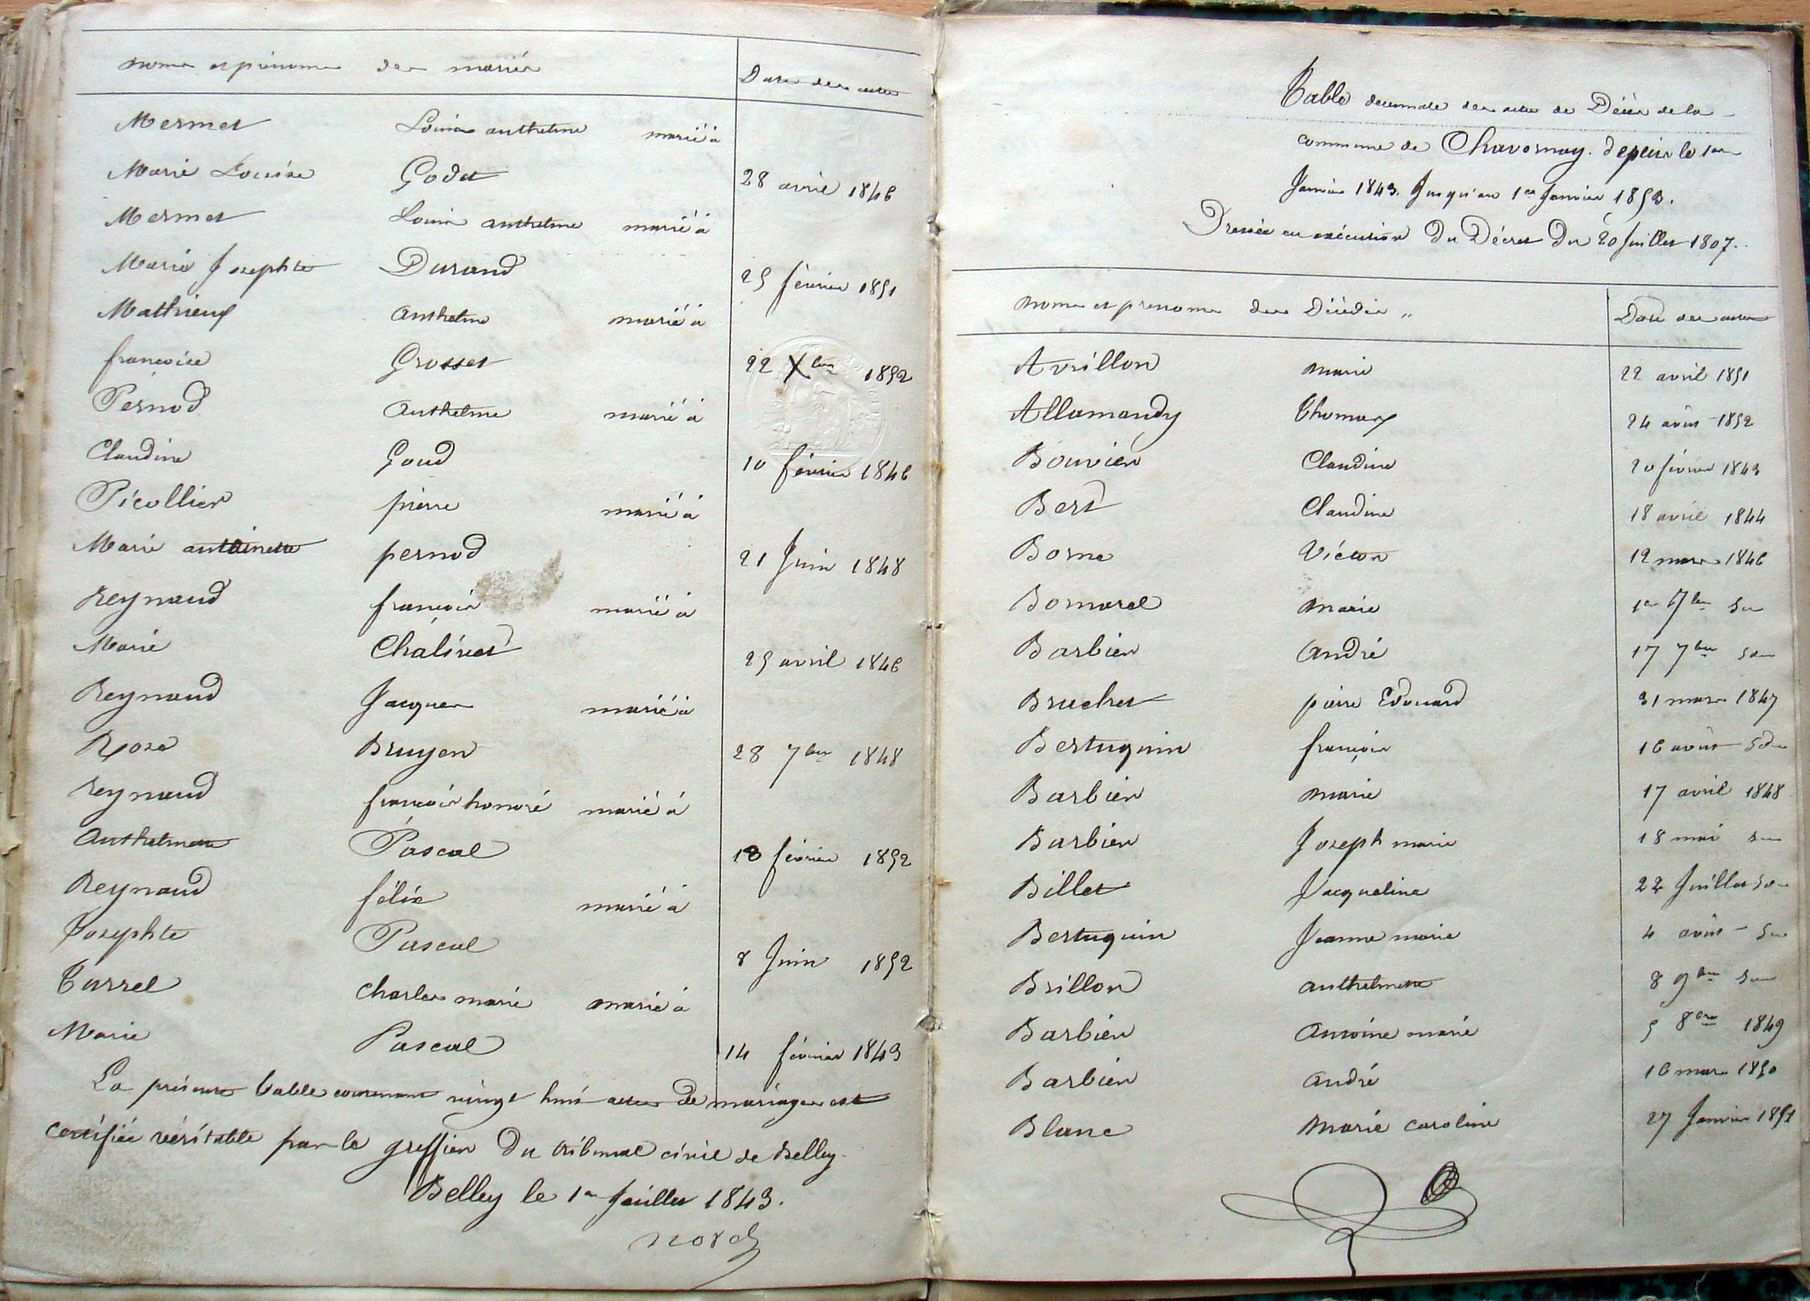 noms et prénoms des mariés Date des actes
Mermet Louis anthelme marié à
Marie Louise Godet 28 avril 1846
Mermet Louis anthelme marié à
Marie Josephte Durand 25 février 1851
Mathieux anthelme marié à
françoise Grosset 22 Xbre 1852
Pernod Anthelme marié à
Claudine Goud 10 février 1846
Picollier pierre marié à
Marie antoinette pernod 21 Juin 1848
Reynaud françois marié à
Marie 25 avril 1846
Reynaud Jacques marié à
Rose Bruyer 28 7bre 1848
reynaud françois honoré marié à
Anthelmette Pascal 18 février 1852
Reynaud félix marié à
Josephte Pascal 8 Juin 1852
Turrel charles marie marié à
Marie Pascal 14 février 1843
La présente table contenant vingt huit actes de mariages est
certifiée véritable par le greffier du tribunal civil de Belley.
Belley le 1er Juillet 1843.
Table décennale des actes de Décès de la
commune de Chavornay. depuis le 1er
Janvier 1843. Jusqu'au 1er Janvier 1853.
Dressée en exécution du Décret du 20 Juillet 1807.
noms et prenoms des Décédés Date des actes
Avrillon marie 22 avril 1851
Allamandy Thomas 24 août 1852
Bouvier Claudine 20 février 1843
Bert Claudine 18 avril 1844
Borne Victor 12 mars 1846
Bomarel marie 1er 7bre
Barbier André 17 7bre
Bruchet pierre Edouard 31 mars 1847
Bertuguin françois 16 août
Barbier marie 17 avril 1848
Barbier Joseph marie 18 mai
Billet Jacqueline 22 Juillet
Bertuguin Jeanne marie 4 août
Brillon anthelmette 8 9bre
Barbier Antoine marie 5 8bre 1849
Barbier André 16 mars 1850
Blanc Marie caroline 27 Janvier 1851